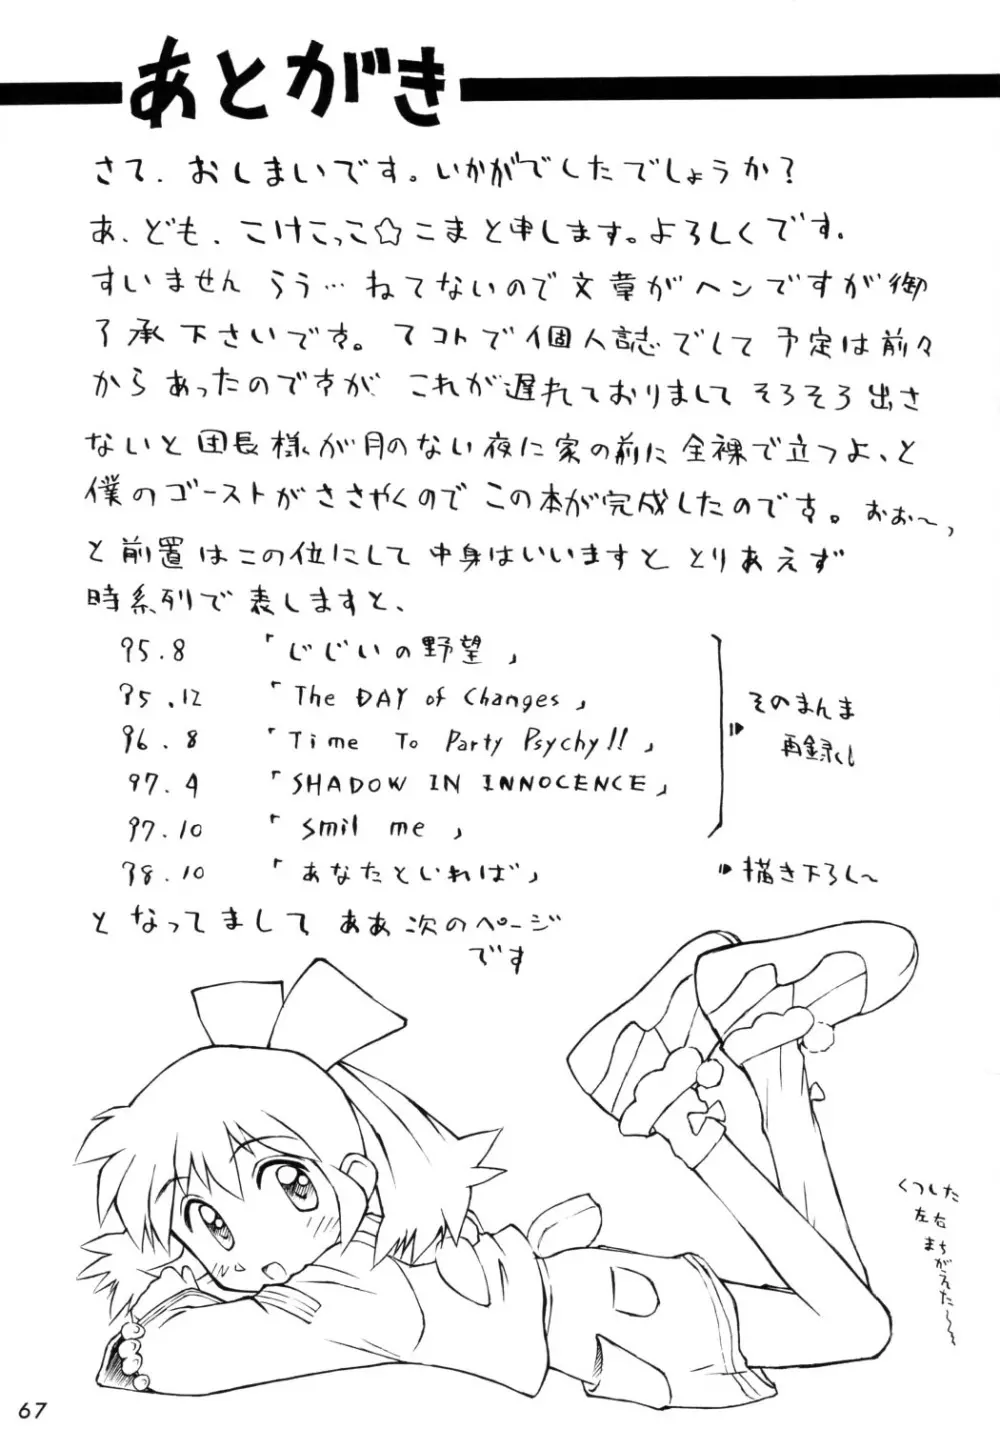 あとがき
さて、おしまいです。いかがでしたでしょうか？
あ、ども、こけこっこ☆こまと申します。よろしくです。
すいません らう…ねてないので文章がヘンですが御
了承下さいです。てコトで個人誌でして予定は前々
からあったのですが これが遅れておりましてそろそろ出さ
ないと団長様が月のない夜に家の前に全裸で立つよ、と
僕のゴーストがささやくのでこの本が完成したのです。おぉ〜っ
と前置はこの位にして中身はいいますと とりあえず
時系列で表しますと、
95.8 「じじいの野望」
95.12 「The DAY of Changes」
96.8 「Time To Party Psychy!!」
97.4 「SHADOW IN INNOCENCE」
97.10 「Smil me」
そのまんま
再録くし
98.10 「あなたといれば」 描き下ろし〜
となってまして ああ次のページ
です
くつした
左右
まちがえた〜
67